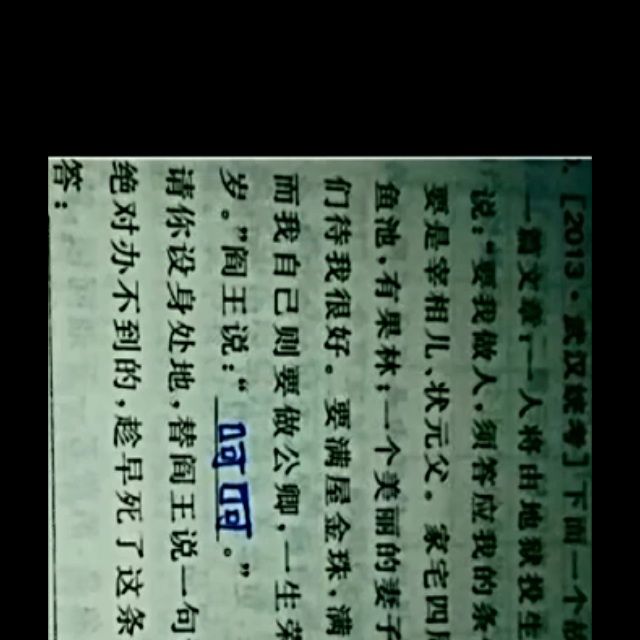 [2013·武汉联考]下面一个
一篇文章:一人将由地狱投生
说:“要我做人,须答应我的条
要是宰相儿、状元父。家宅四周
鱼池,有果林;一个美丽的妻子
们待我很好。要满屋金珠,满
而我自己则要做公卿,一生荣
岁。”阎王说:“呵呵。”
请你设身处地,替阎王说一句
绝对办不到的,趁早死了这条
答: